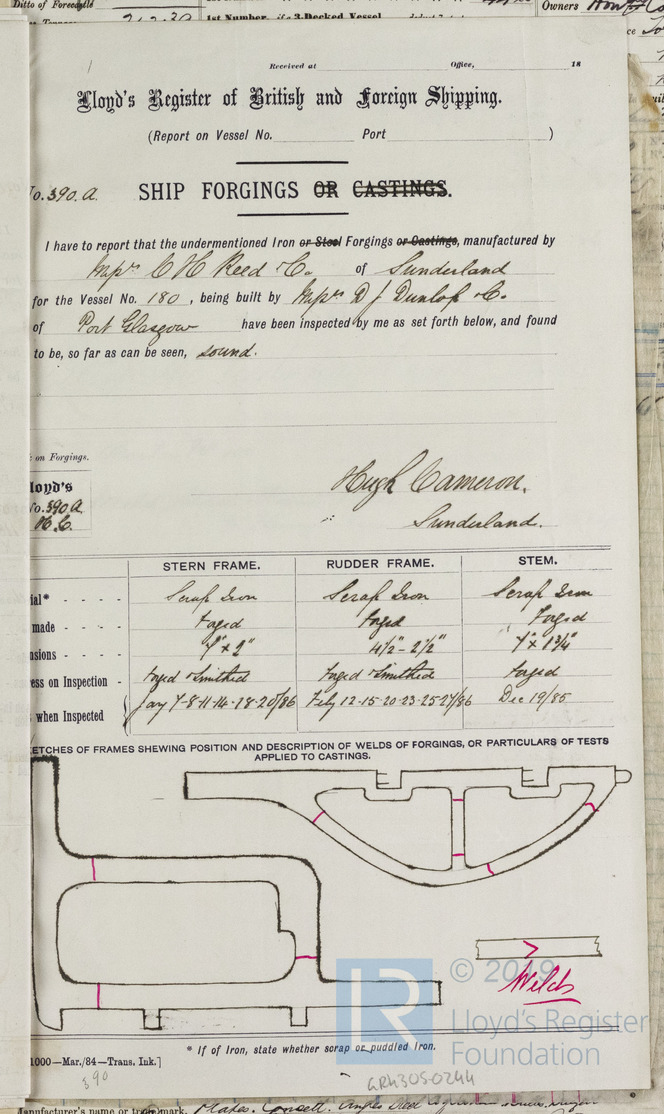 Ditto of Forecastle
Owners
1st Number, if a 3-Decked Vessel
Received at Office, 18
Lloyd's Register of British and Foreign Shipping.
(Report on Vessel No. Port )
No. 390.A.
SHIP FORGINGS OR CASTINGS.
I have to report that the undermentioned Iron or Steel Forgings or Castings, manufactured by
Messrs C H Reed & Co. of Sunderland
for the Vessel No. 180, being built by Messrs D J Dunlop & Co.
of Port Glasgow have been inspected by me as set forth below, and found
to be, so far as can be seen, sound.
on Forgings.
loyd's
No. 390A
H.C.
Hugh Cameron.
Sunderland.
STERN FRAME. RUDDER FRAME. STEM.
ial* - - - - Scrap Iron Scrap Iron Scrap Iron
made - - - - forged forged forged
nsions - - - - 7" x 2" 4½" - 2½" 7" x 1¾"
ess on Inspection - forged & Smithed forged & Smithed forged
when Inspected Jany 7-8-11-14-18-20/86 Feby 12-15-20-23-25-27/86 Dec 19/85
KETCHES OF FRAMES SHEWING POSITION AND DESCRIPTION OF WELDS OF FORGINGS, OR PARTICULARS OF TESTS
APPLIED TO CASTINGS.
Welds
© 2019
LR
Lloyd's Register
Foundation
* If of Iron, state whether scrap or puddled Iron.
1000—Mar./84—Trans. Ink.]
390
GRH305-0244
anufacturer's name or trademark. Plates. Consett. Angles Steel